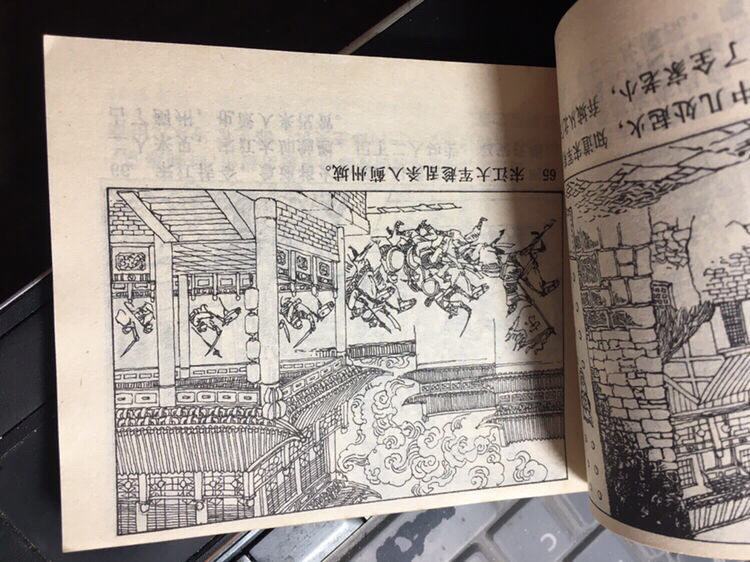 中几处起火，知道宋军
了全家老小，弃城从北
65 宋江大军趁乱杀入蓟州城。